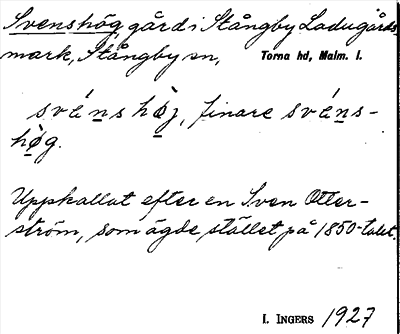 Svenshög, gård i Stångby Ladugårds-
mark, Stångby sn, Torna hd, Malm. l.
své̱ns hö̱̀j, finare své̱ns-
hö̱̀g.
Uppkallat efter en Sven Otter-
ström, som ägde stället på 1850-talet.
I. INGERS 1927